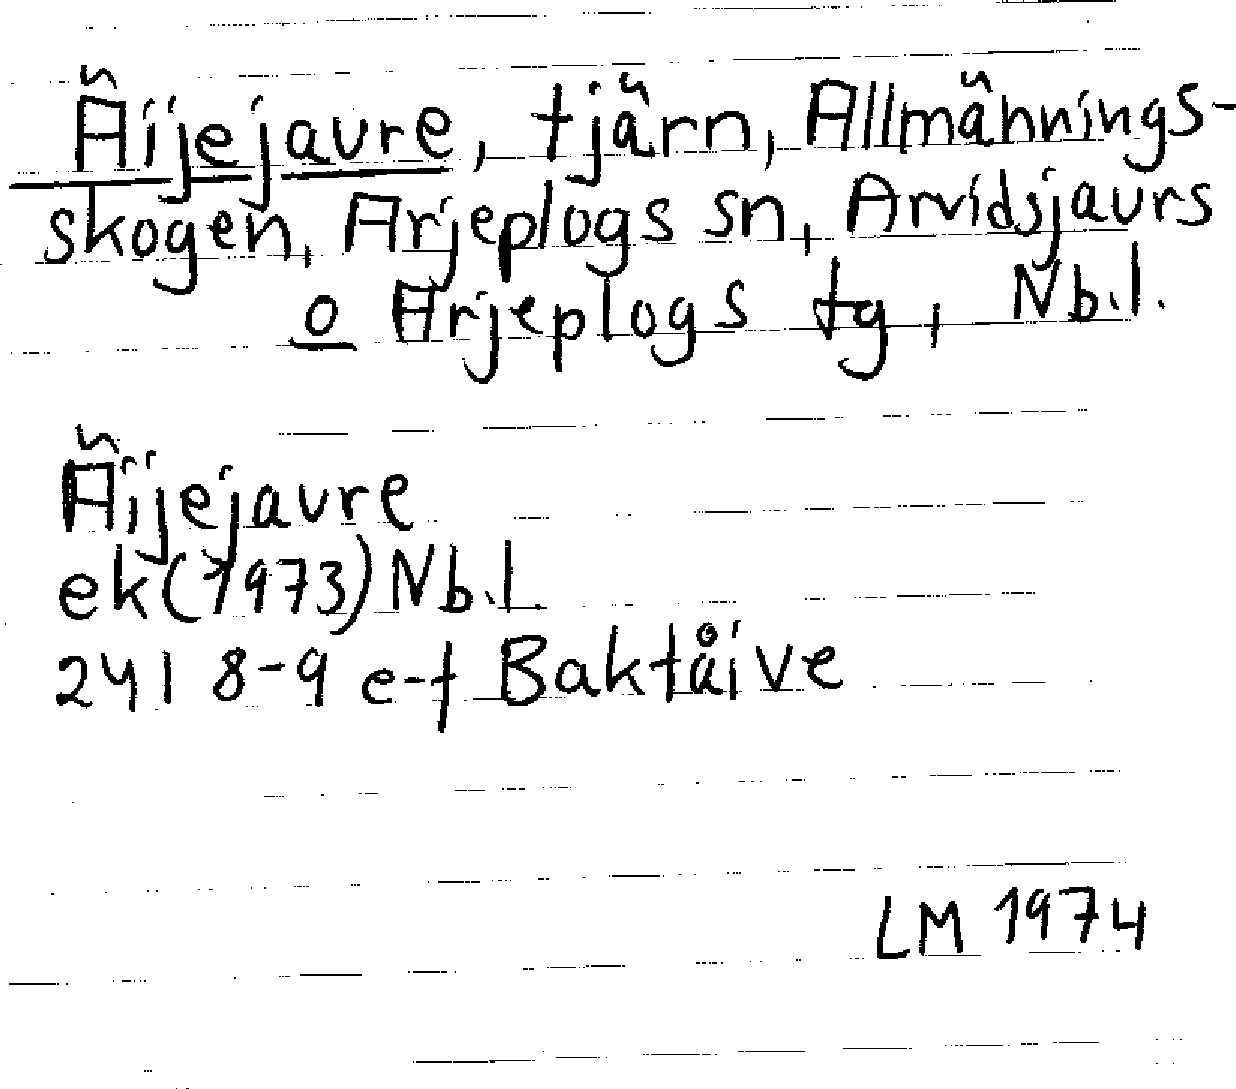 Äijejaure, tjärn, Allmännings-
skogen, Arjeplogs sn, Arvidsjaurs
o Arjeplogs tg, Nb.l.
Äijejaure
ek (1973) Nb.l.
24I 8-9 e-f Baktåive
LM 1974